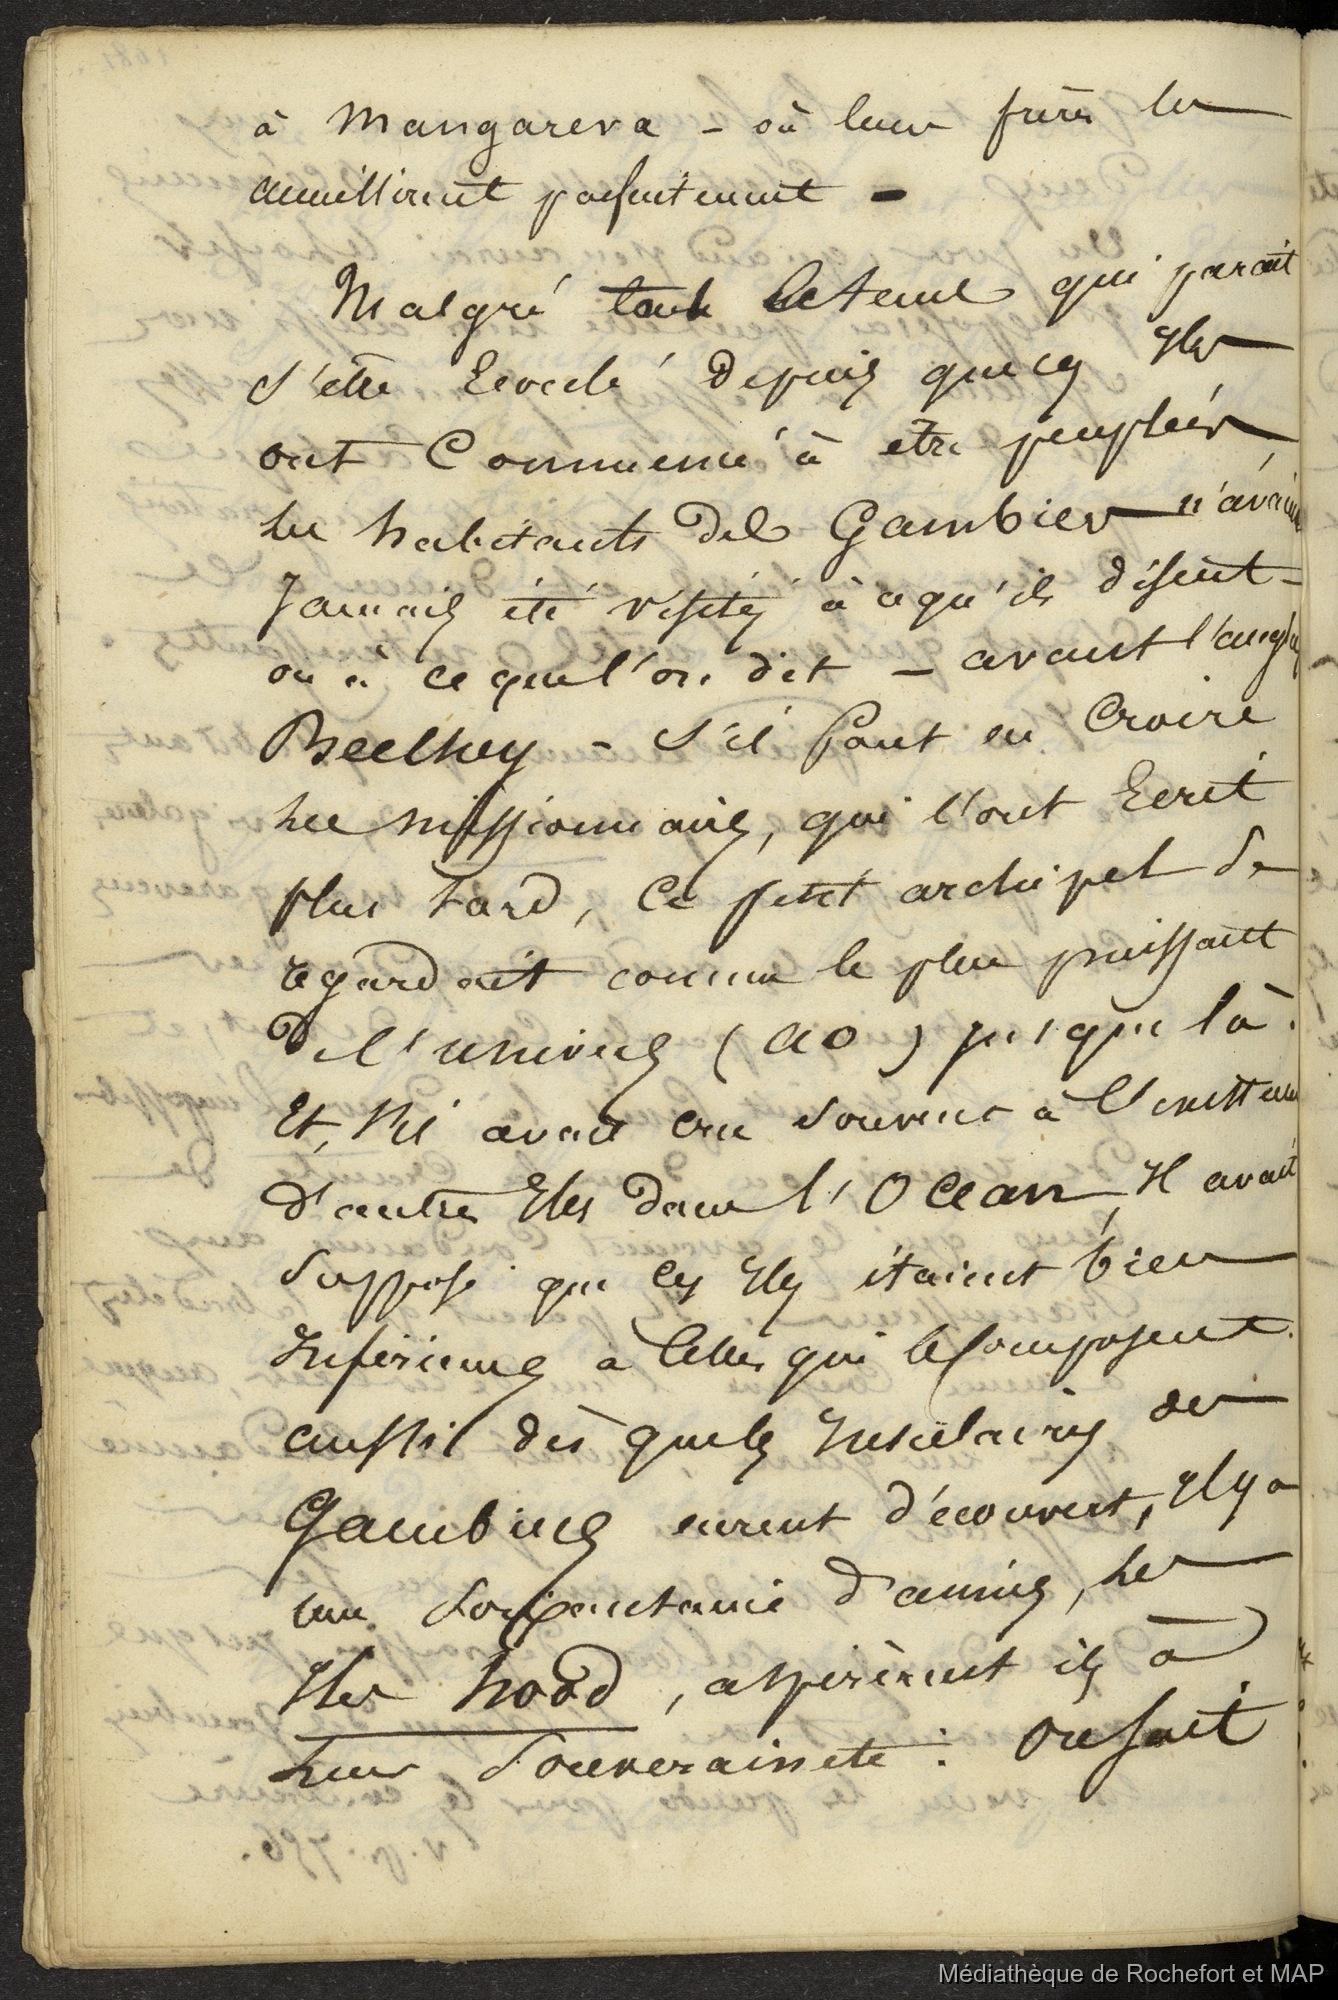 à Mangareva - où leurs frères les
accueillirent parfaitement -
Malgré tout le temps qui paraît
s'être Ecoulé depuis que ces Iles
ont Commencé à être peuplées
les habitants des Gambier n'avaient
Jamais été visités à ce qu'ils disent -
ou à ce que l'on dit - avant l'anglais
Beechey - S'il faut en Croire
les missionnaires, qui l'ont Ecrit
plus tard, Ce petit archipel se
regardait comme le plus puissant
de l'univers (ao) jusque là.
Et, s'il avait cru souvent à l'existence
d'autres Iles dans l'Océan, Il avait
supposé que ces Iles étaient bien
Inférieures à Celles qui le Composent.
aussi dès que les Insulaires des
Gambiers eurent découvert, Il y a
une soixantaine d'années, les
Iles hood, aspirèrent ils à
leur souveraineté : On sait
Médiathèque de Rochefort et MAP